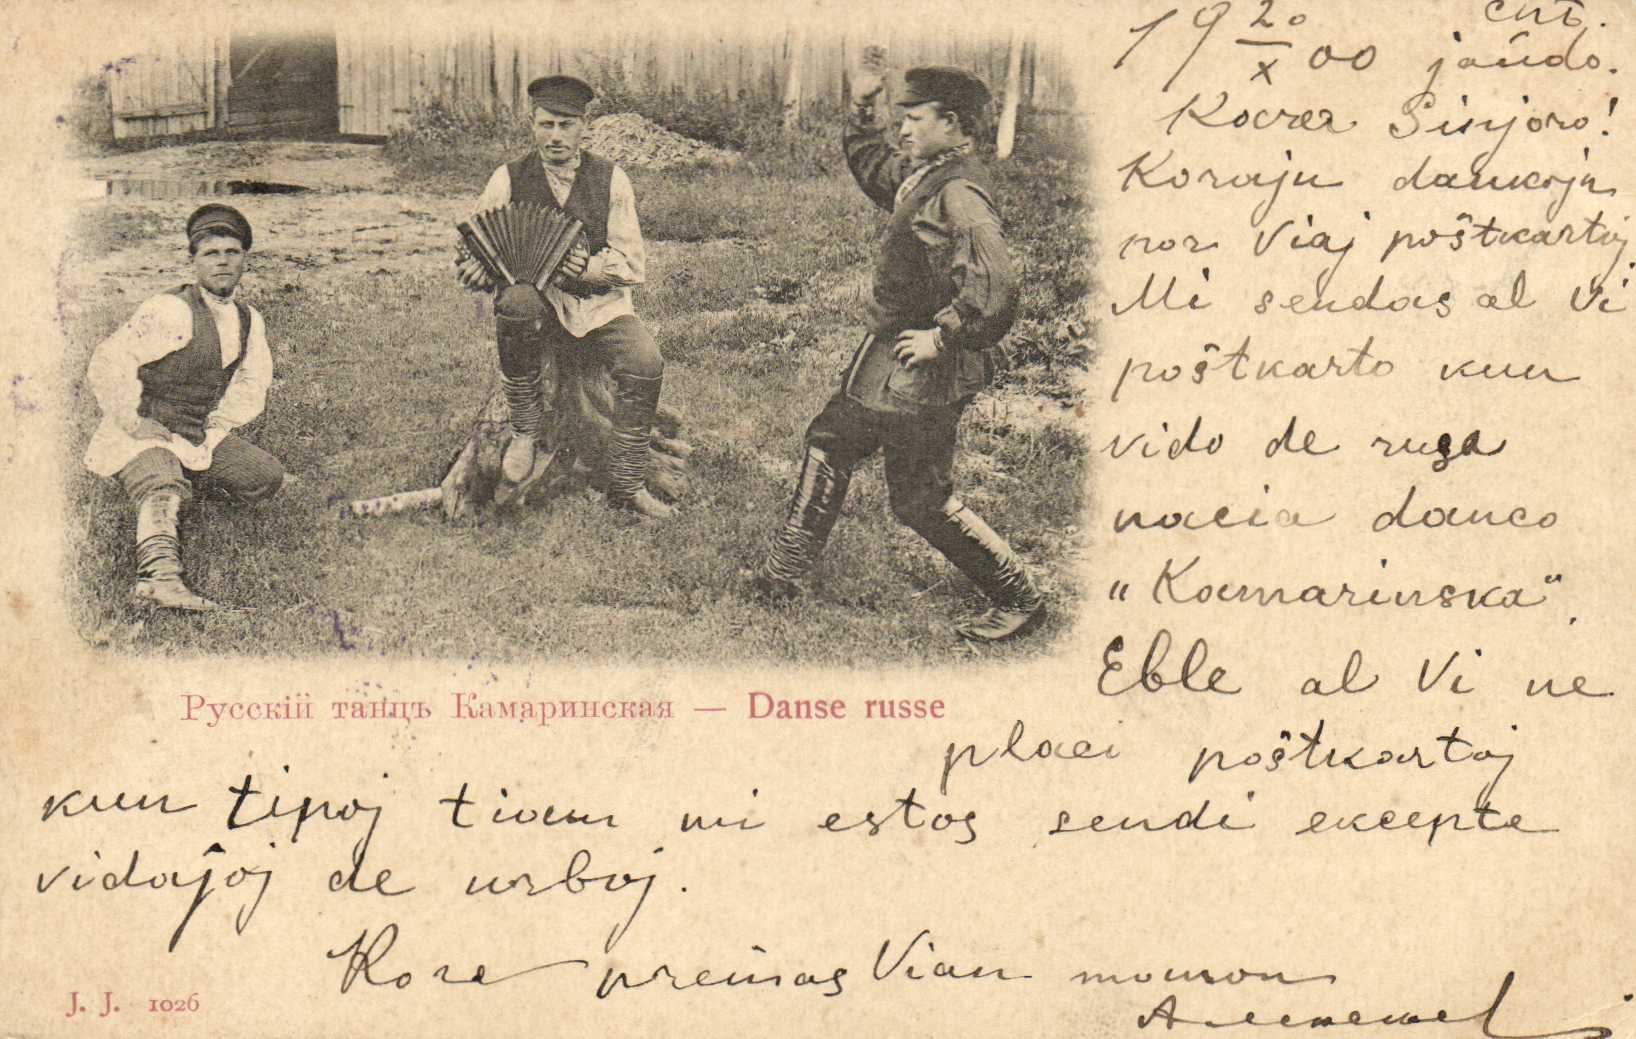 19 20/X 00 спб.
jaŭdo.
Kara Sinjoro!
Korajn dankojn
por Viaj poŝtkartoj
Mi sendas al Vi
poŝtkarto kun
vido de rusa
nacia danco
"Kamarinska".
Eble al Vi ne
placi poŝtkartoj
kun tipoj tiam mi estos sendi excepte
vidaĵoj de urboj.
Kore premas Vian manon
Русскій танцъ Камаринская — Danse russe
J. J. 1026